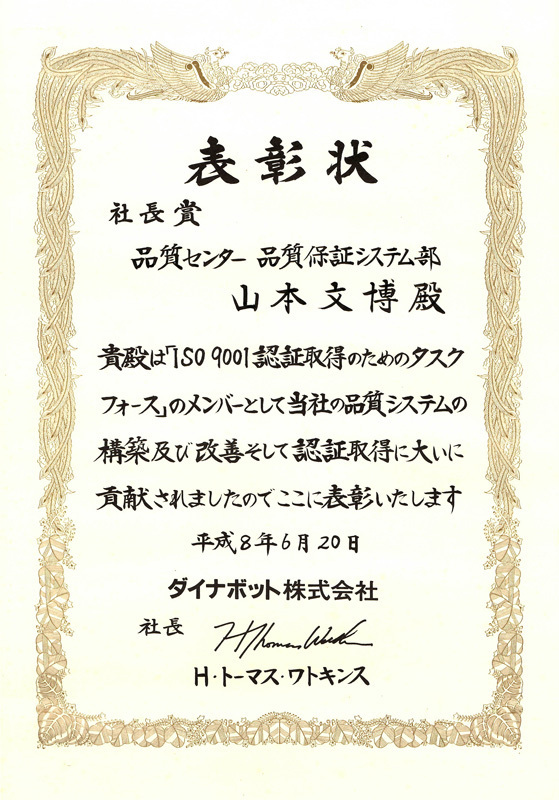 表彰状
社長賞
品質センター 品質保証システム部
山本文博殿
貴殿は「ISO 9001認証取得のためのタスク
フォース」のメンバーとして当社の品質システムの
構築及び改善そして認証取得に大いに
貢献されましたのでここに表彰いたします
平成8年6月20日
ダイナボット株式会社
社長 H Thomas Watkins
H・トーマス・ワトキンス